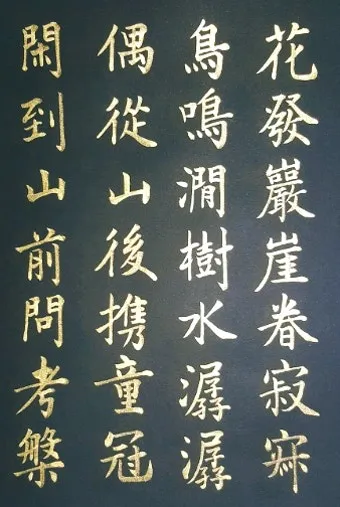 花發巖崖春寂寞
鳥鳴澗樹水潺潺
偶從山後携童冠
閑到山前問考槃